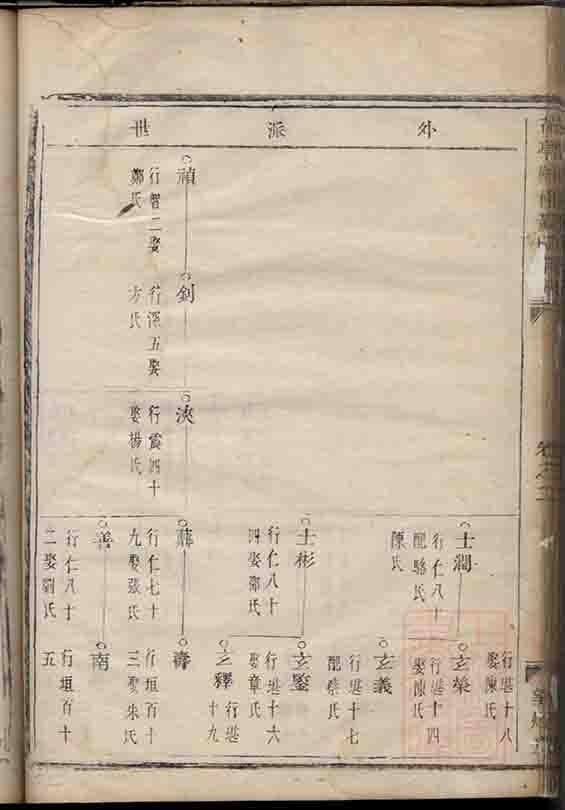 外派世
卷之五
行堪十八
娶陳氏
士潤
行仁八十
配駱氏
陳氏
玄榮
行堪十四
娶陳氏
玄義
行堪十七
配蔡氏
士彬
行仁八十
四娶鄭氏
玄鑒
行堪十六
娶章氏
玄釋
行堪
十九
禎
行智二娶
鄭氏
釗
行深五娶
方氏
浹
行震四十
娶楊氏
行仁七十
九娶張氏
壽
行垣百十
三娶朱氏
善
行仁八十
二娶劉氏
南
行垣百十
五